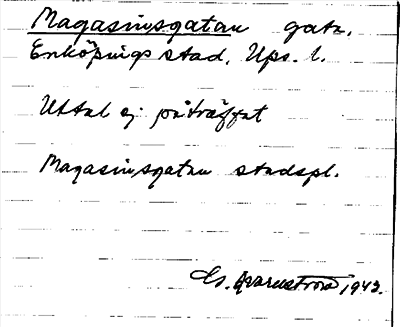 Magasinsgatan gata,
Enköpings stad, Ups. l.
Uttal ej påträffat
Magasinsgatan stadspl.
Es. Qvarnström 1943.